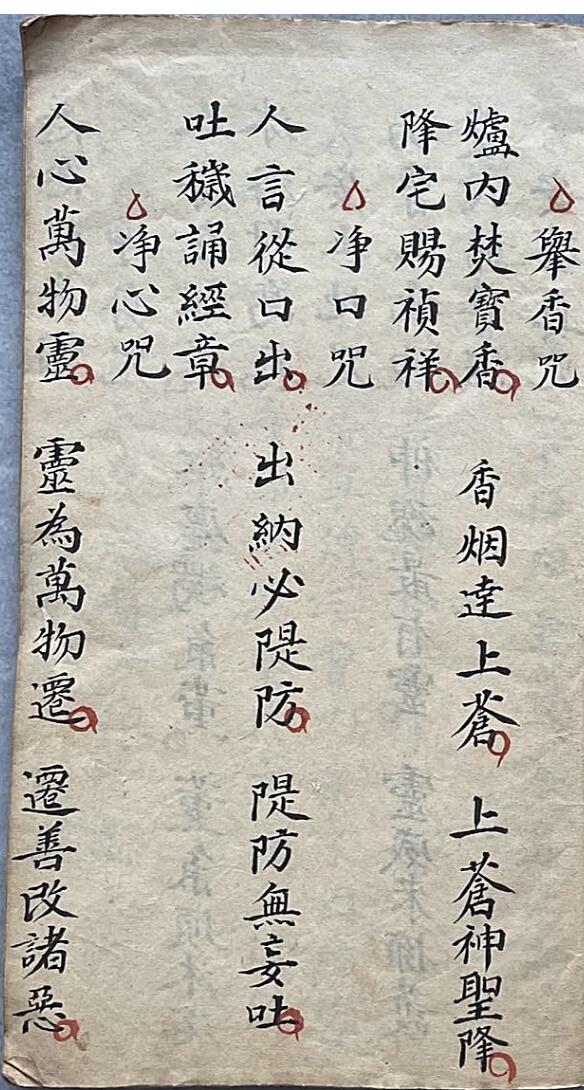 舉香咒
爐內焚寶香 香烟達上蒼 上蒼神聖降
降宅賜禎祥
净口咒
人言從口出 出納必隄防 隄防無妄吐
吐穢誦經章
净心咒
人心萬物靈 靈為萬物遷 遷善改諸惡